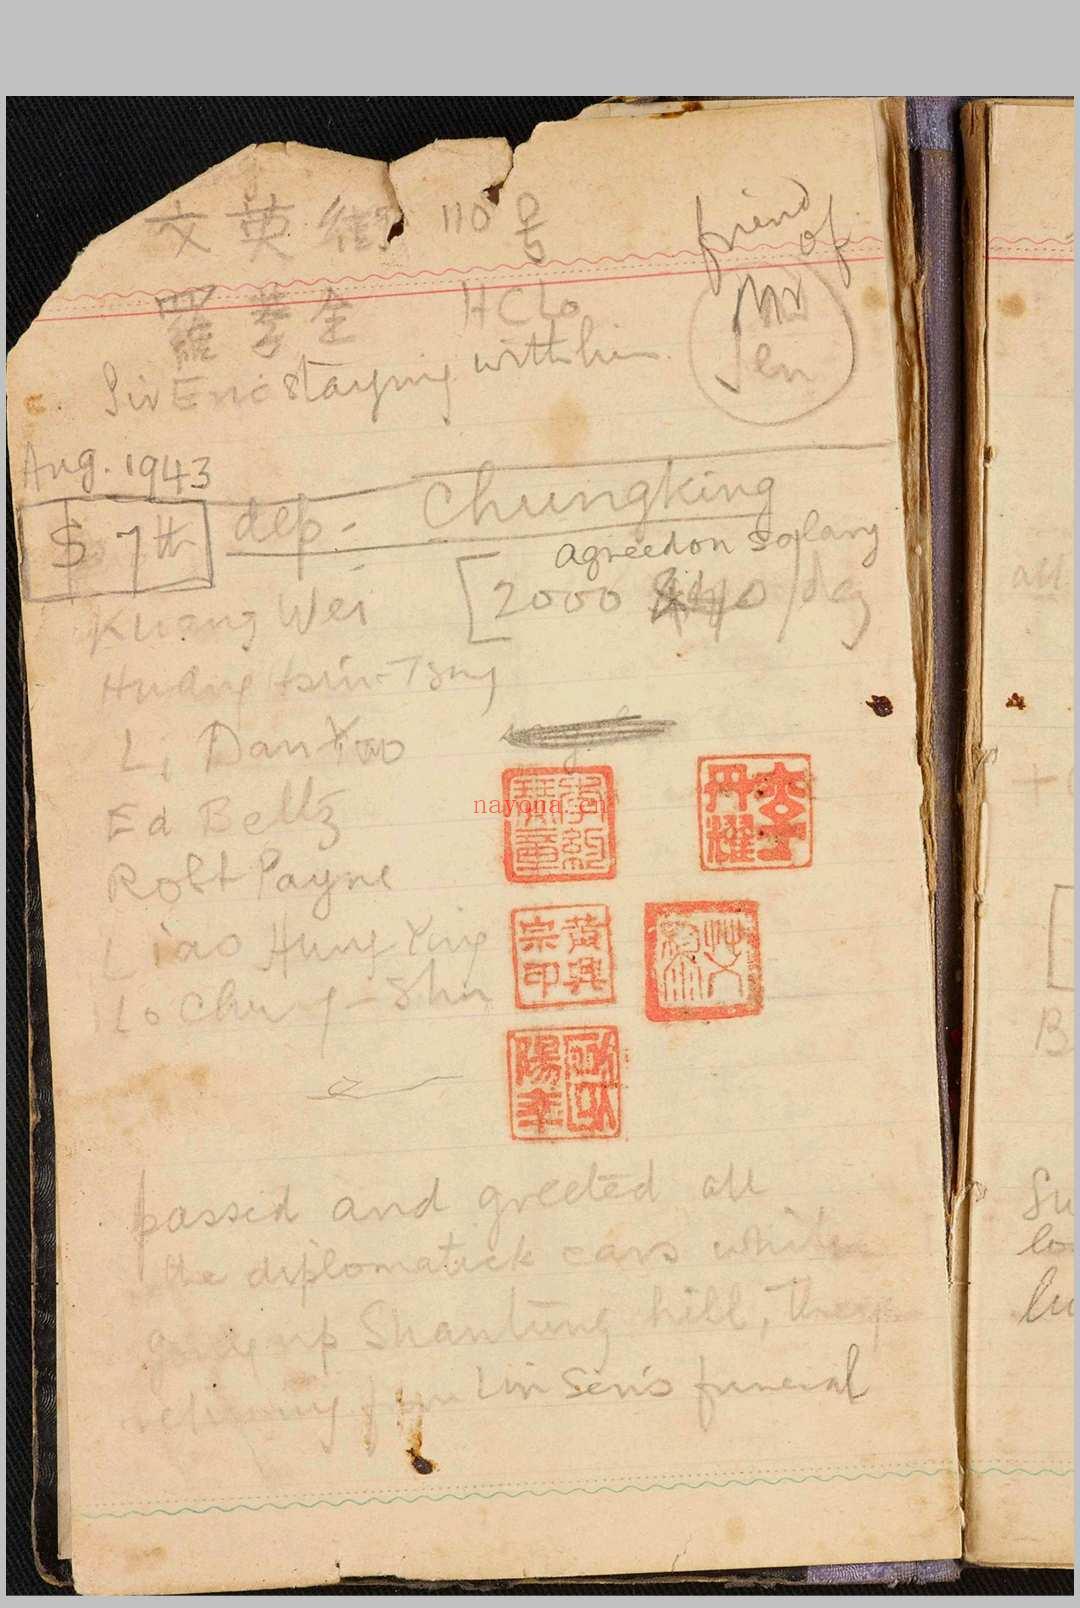 文英街 110号
friend of
Mr Sen
羅 全 HCLo
Sir Eric staying with him
Aug. 1943
S 7th dep. Chungking
agreed on salary
[2000 /day
Kuang Wei
Huang Hsin-Tsung
Li Dan Yao
Ed Beltz
Robt Payne
Liao Hung Ying
Lo Chung-Shu
nayona.cn
李約
丹耀
黃興
宗印
歐
陽
passed and greeted all
the diplomatick cars while
going up Shantung hill, they
returning from Lin Sen's funeral
all
B
Su
lo
lu